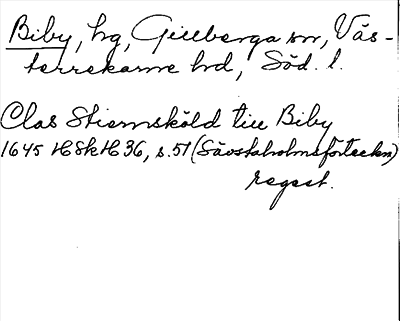 Biby, hg, Gillberga sn, Väs-
terrekarne hd, Söd. l.
Clas Stiernsköld till Biby
1645 HSkH 36, s. 51 (Sävstaholmsförteckn)
regest.